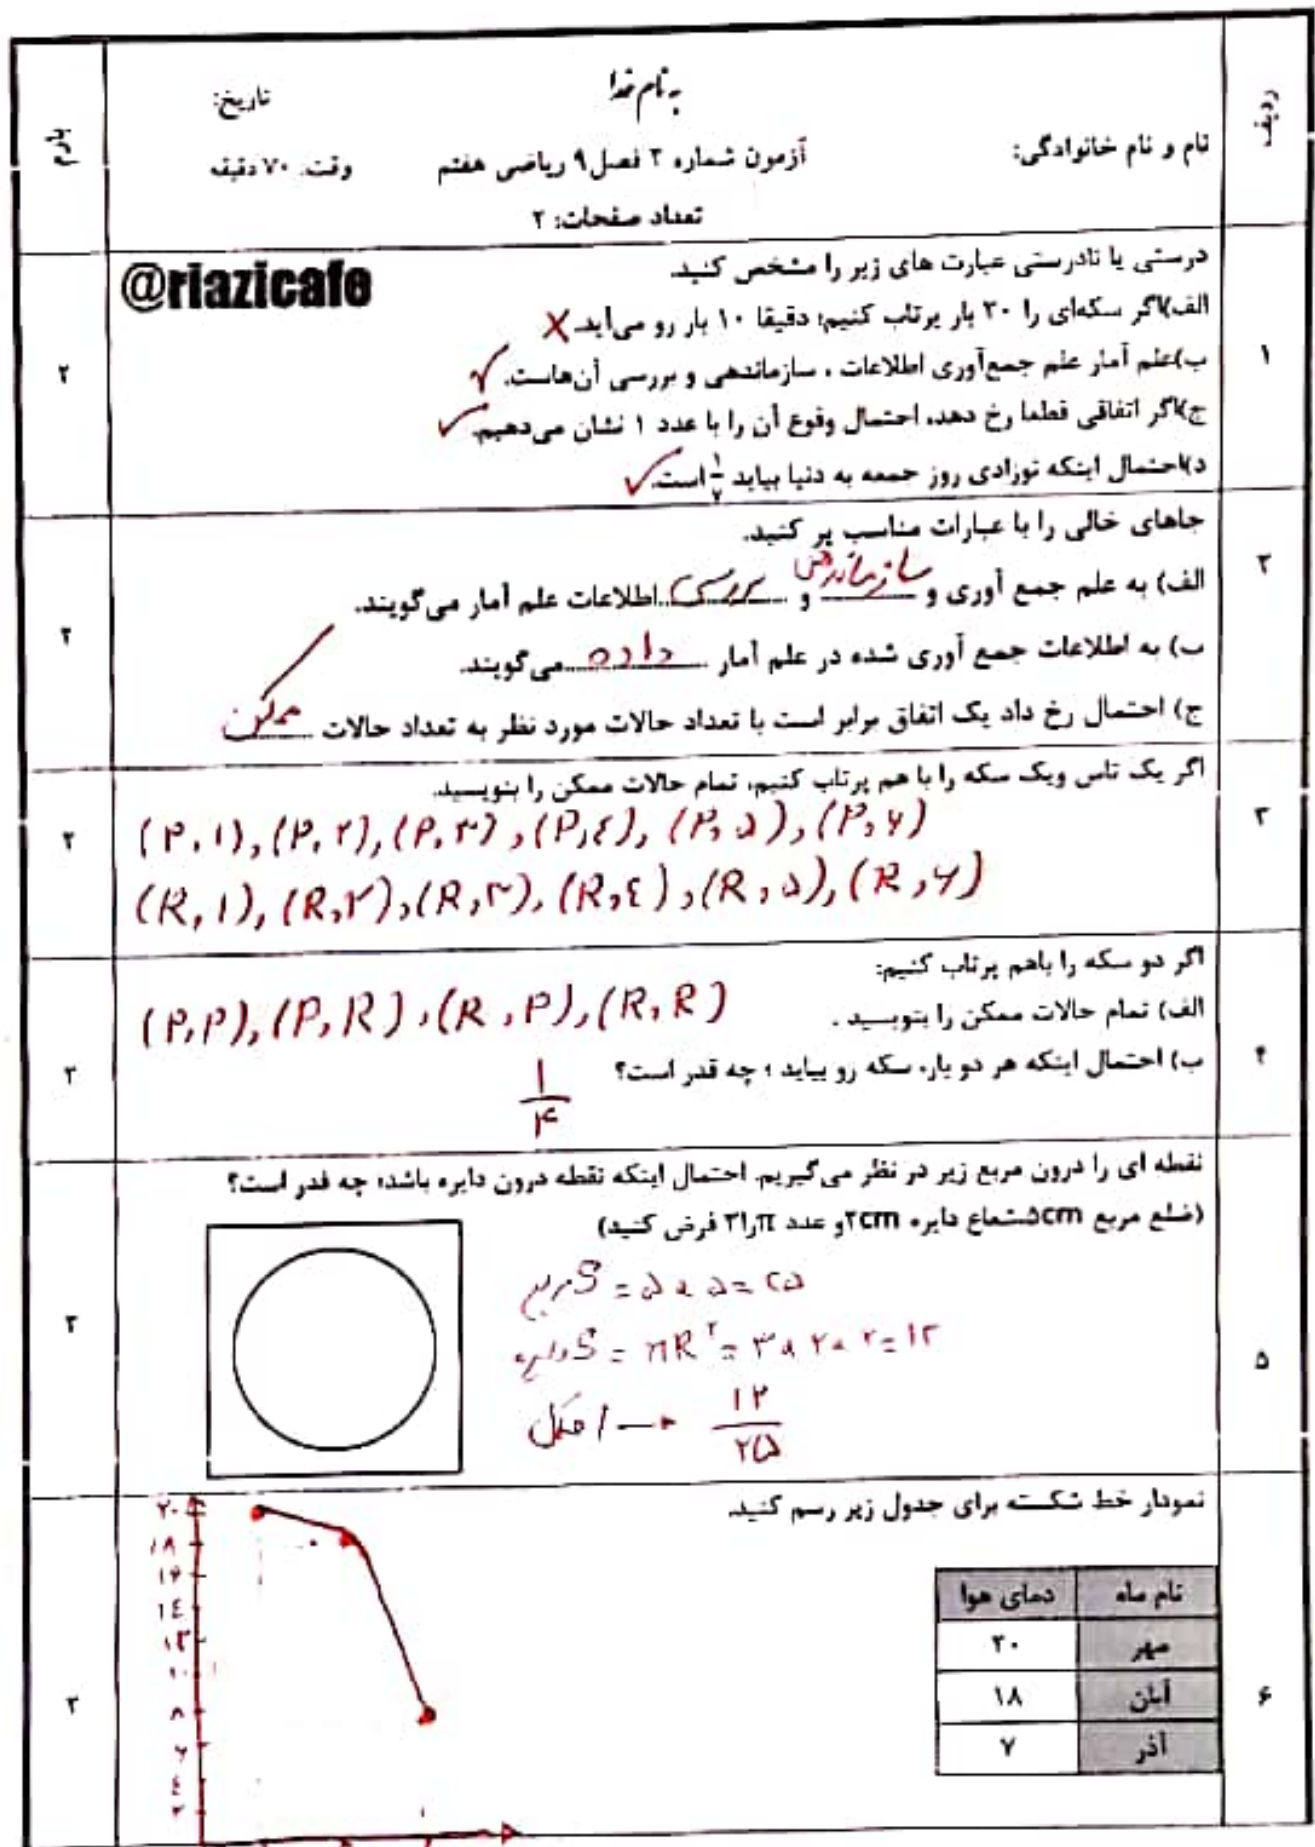 ردیف
به نام خدا
بارم
نام و نام خانوادگی:
آزمون شماره ۲ فصل ۹ ریاضی هفتم
تاریخ:
وقت: ۷۰ دقیقه
تعداد صفحات: ۲
@riazicafe
۱
درستی یا نادرستی عبارت های زیر را مشخص کنید.
الف)اگر سکه‌ای را ۲۰ بار پرتاب کنیم؛ دقیقا ۱۰ بار رو می‌آید. ×
ب)علم آمار علم جمع‌آوری اطلاعات ، سازماندهی و بررسی آن‌هاست. ✓
ج)اگر اتفاقی قطعا رخ دهد، احتمال وقوع آن را با عدد ۱ نشان می‌دهیم. ✓
د)احتمال اینکه نوزادی روز جمعه به دنیا بیاید ۱/۷ است. ✓
۲
۲
جاهای خالی را با عبارات مناسب پر کنید.
الف) به علم جمع آوری و سازماندهی و بررسی اطلاعات علم آمار می‌گویند.
ب) به اطلاعات جمع آوری شده در علم آمار داده می‌گویند.
ج) احتمال رخ داد یک اتفاق برابر است با تعداد حالات مورد نظر به تعداد حالات ممکن
۲
۳
اگر یک تاس ویک سکه را با هم پرتاب کنیم، تمام حالات ممکن را بنویسید.
(P,۱), (P,۲), (P,۳), (P,٤), (P,۵), (P,۶)
(R,۱), (R,۲), (R,۳), (R,٤), (R,۵), (R,۶)
۲
۴
اگر دو سکه را باهم پرتاب کنیم:
الف) تمام حالات ممکن را بنویسید .
(P,P), (P,R), (R,P), (R,R)
ب) احتمال اینکه هر دو بار، سکه رو بیاید ؛ چه قدر است؟
۱/۴
۵
نقطه ای را درون مربع زیر در نظر می‌گیریم. احتمال اینکه نقطه درون دایره باشد؛ چه قدر است؟
(ضلع مربع ۵cm شعاع دایره ۲cm و عدد π را ۳ فرض کنید)
مربع S = ۵ × ۵ = ۲۵
دایره S = πR² = ۳ × ۲ × ۲ = ۱۲
احتمال → ۱۲/۲۵
۶
نمودار خط شکسته برای جدول زیر رسم کنید.
نام ماه دمای هوا
مهر ۲۰
آبان ۱۸
آذر ۷
۲۰
۱۸
۱۶
۱٤
۱۲
۱۰
۸
۶
٤
۲